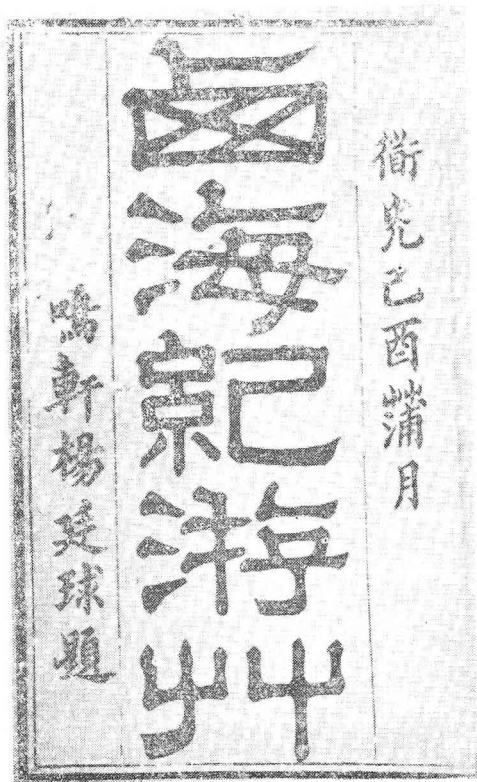 衟灮己酉蒲月
卥海紀游艸
鳴軒楊廷球題